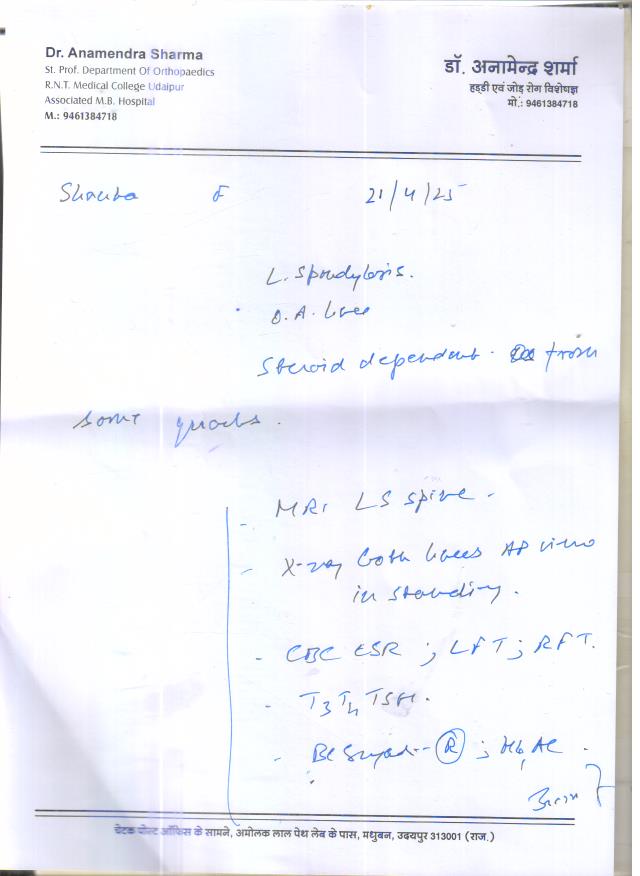 Dr. Anamendra Sharma
St. Prof. Department Of Orthopaedics
R.N.T. Medical College Udaipur
Associated M.B. Hospital
M.: 9461384718
डॉ. अनामेन्द्र शर्मा
हड्डी एवं जोड़ रोग विशेषज्ञ
मो.: 9461384718
F 21/4/25
L. Spondylosis.
O.A. knee
Steroid dependent. from
some quacks.
- MRI LS spine.
- X-ray both knees AP view
in standing.
- CBC ESR ; LFT ; RFT.
- T3 T4 TSH.
- (R) ;
चेटक पोस्ट ऑफिस के सामने, अमोलक लाल पेथ लेब के पास, मधुबन, उदयपुर 313001 (राज.)